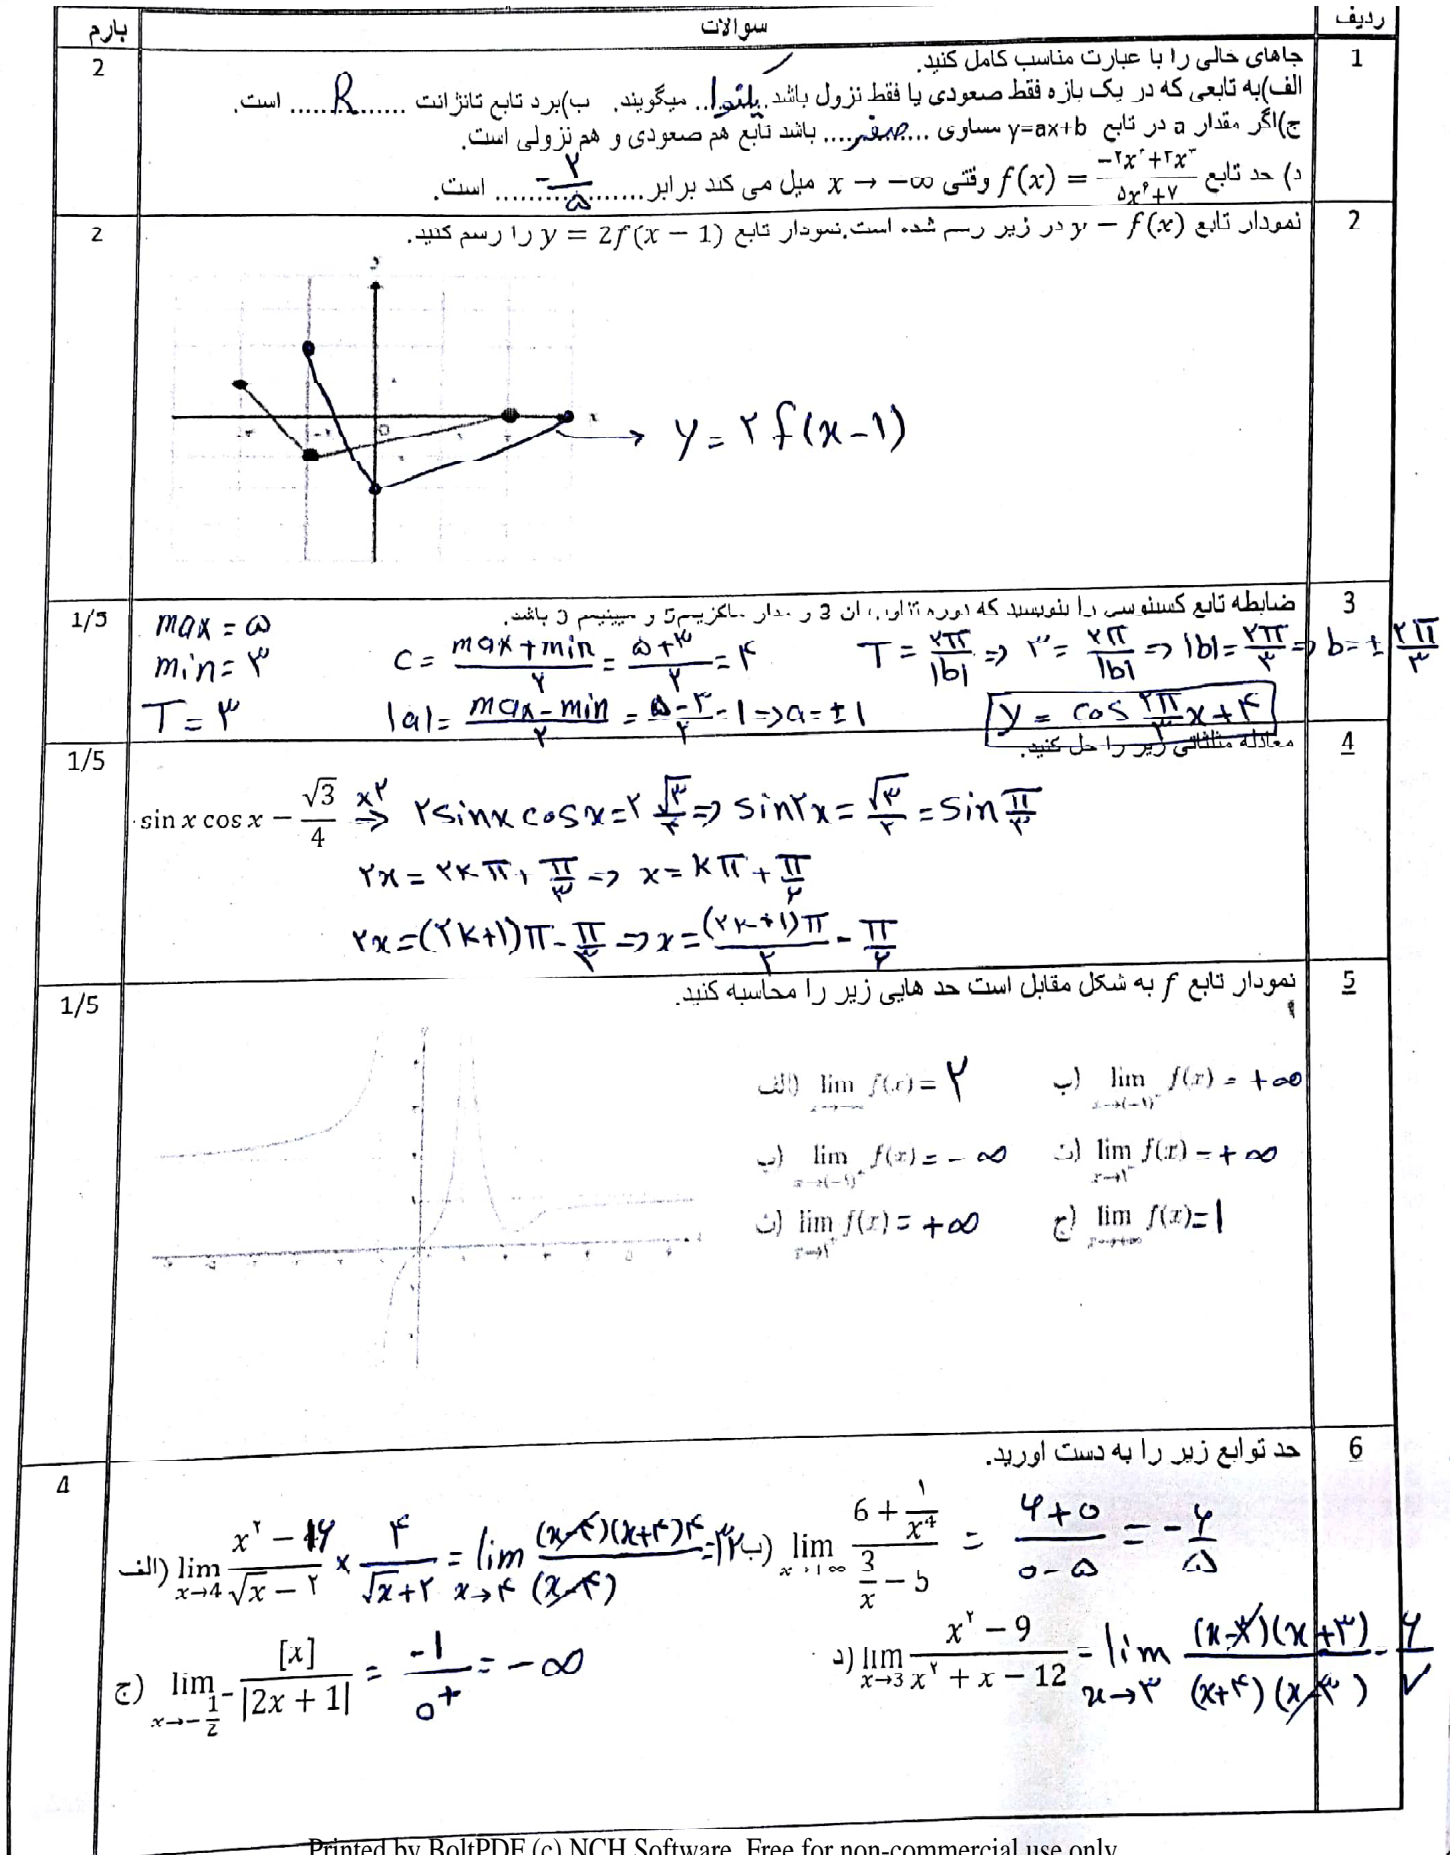 ردیف سوالات بارم
1 جاهای خالی را با عبارت مناسب کامل کنید. 2
الف)به تابعی که در یک بازه فقط صعودی یا فقط نزول باشد یکنوا میگویند. ب)برد تابع تانژانت ...... R ...... است.
ج)اگر مقدار a در تابع y=ax+b مساوی ... صفر ... باشد تابع هم صعودی و هم نزولی است.
د) حد تابع f(x) = (-۲x + ۲x^۳)/(۵x + ۷) وقتی x → -∞ میل می کند برابر ...... -۲/۵ ...... است.
2 نمودار تابع y = f(x) در زیر رسم شده است.نمودار تابع y = 2f(x − 1) را رسم کنید. 2
y = ۲ f(x-۱)
3 ضابطه تابع کسینوسی را بنویسید که دوره تناوب ان 3 و مدار ماکزیم5 و مینیمم 3 باشد. 1/5
max = ۵
min = ۳
T = ۳
c = (max + min)/۲ = (۵+۳)/۲ = ۴
T = ۲π/|b| => ۳ = ۲π/|b| => |b| = ۲π/۳ => b = ± ۲π/۳
|a| = (max - min)/۲ = (۵-۳)/۲ = 1 => a = ± 1
y = cos ۲π/۳ x + ۴
4 معادله مثلثاتی زیر را حل کنید. 1/5
sin x cos x = √3/4 ×۲ => ۲sinx cosx = ۲ √۳/۴ => sin۲x = √۳/۲ = sin π/۳
۲x = ۲kπ + π/۳ => x = kπ + π/۶
۲x = (۲k+1)π - π/۳ => x = (۲k+1)π/۲ - π/۶
5 نمودار تابع f به شکل مقابل است حد هایی زیر را محاسبه کنید. 1/5
الف) lim x→-∞ f(x) = ۲
ب) lim x→(-۱)⁻ f(x) = +∞
پ) lim x→(-۱)⁺ f(x) = -∞
ت) lim x→۱⁻ f(x) = +∞
ث) lim x→۱⁺ f(x) = +∞
ج) lim x→+∞ f(x) = 1
6 حد توابع زیر را به دست اورید. 4
الف) lim x→4 (x^۲ − ۱۶)/(√x − ۲) × ۴/(√x+۲) = lim x→۴ (x-۴)(x+۴)۴/(x-۴) = ۳۲
ب) lim x→+∞ (6 + ۱/x^4)/(3/x − 5) = (۶+۰)/(۰-۵) = -۶/۵
ج) lim x→-1/2⁻ [x]/|2x + 1| = -1/۰⁺ = -∞
د) lim x→3 (x^۲ − 9)/(x^۲ + x − 12) = lim x→۳ (x-۳)(x+۳)/(x+۴)(x-۳) = ۶/۷
Printed by BoltPDF (c) NCH Software. Free for non-commercial use only.